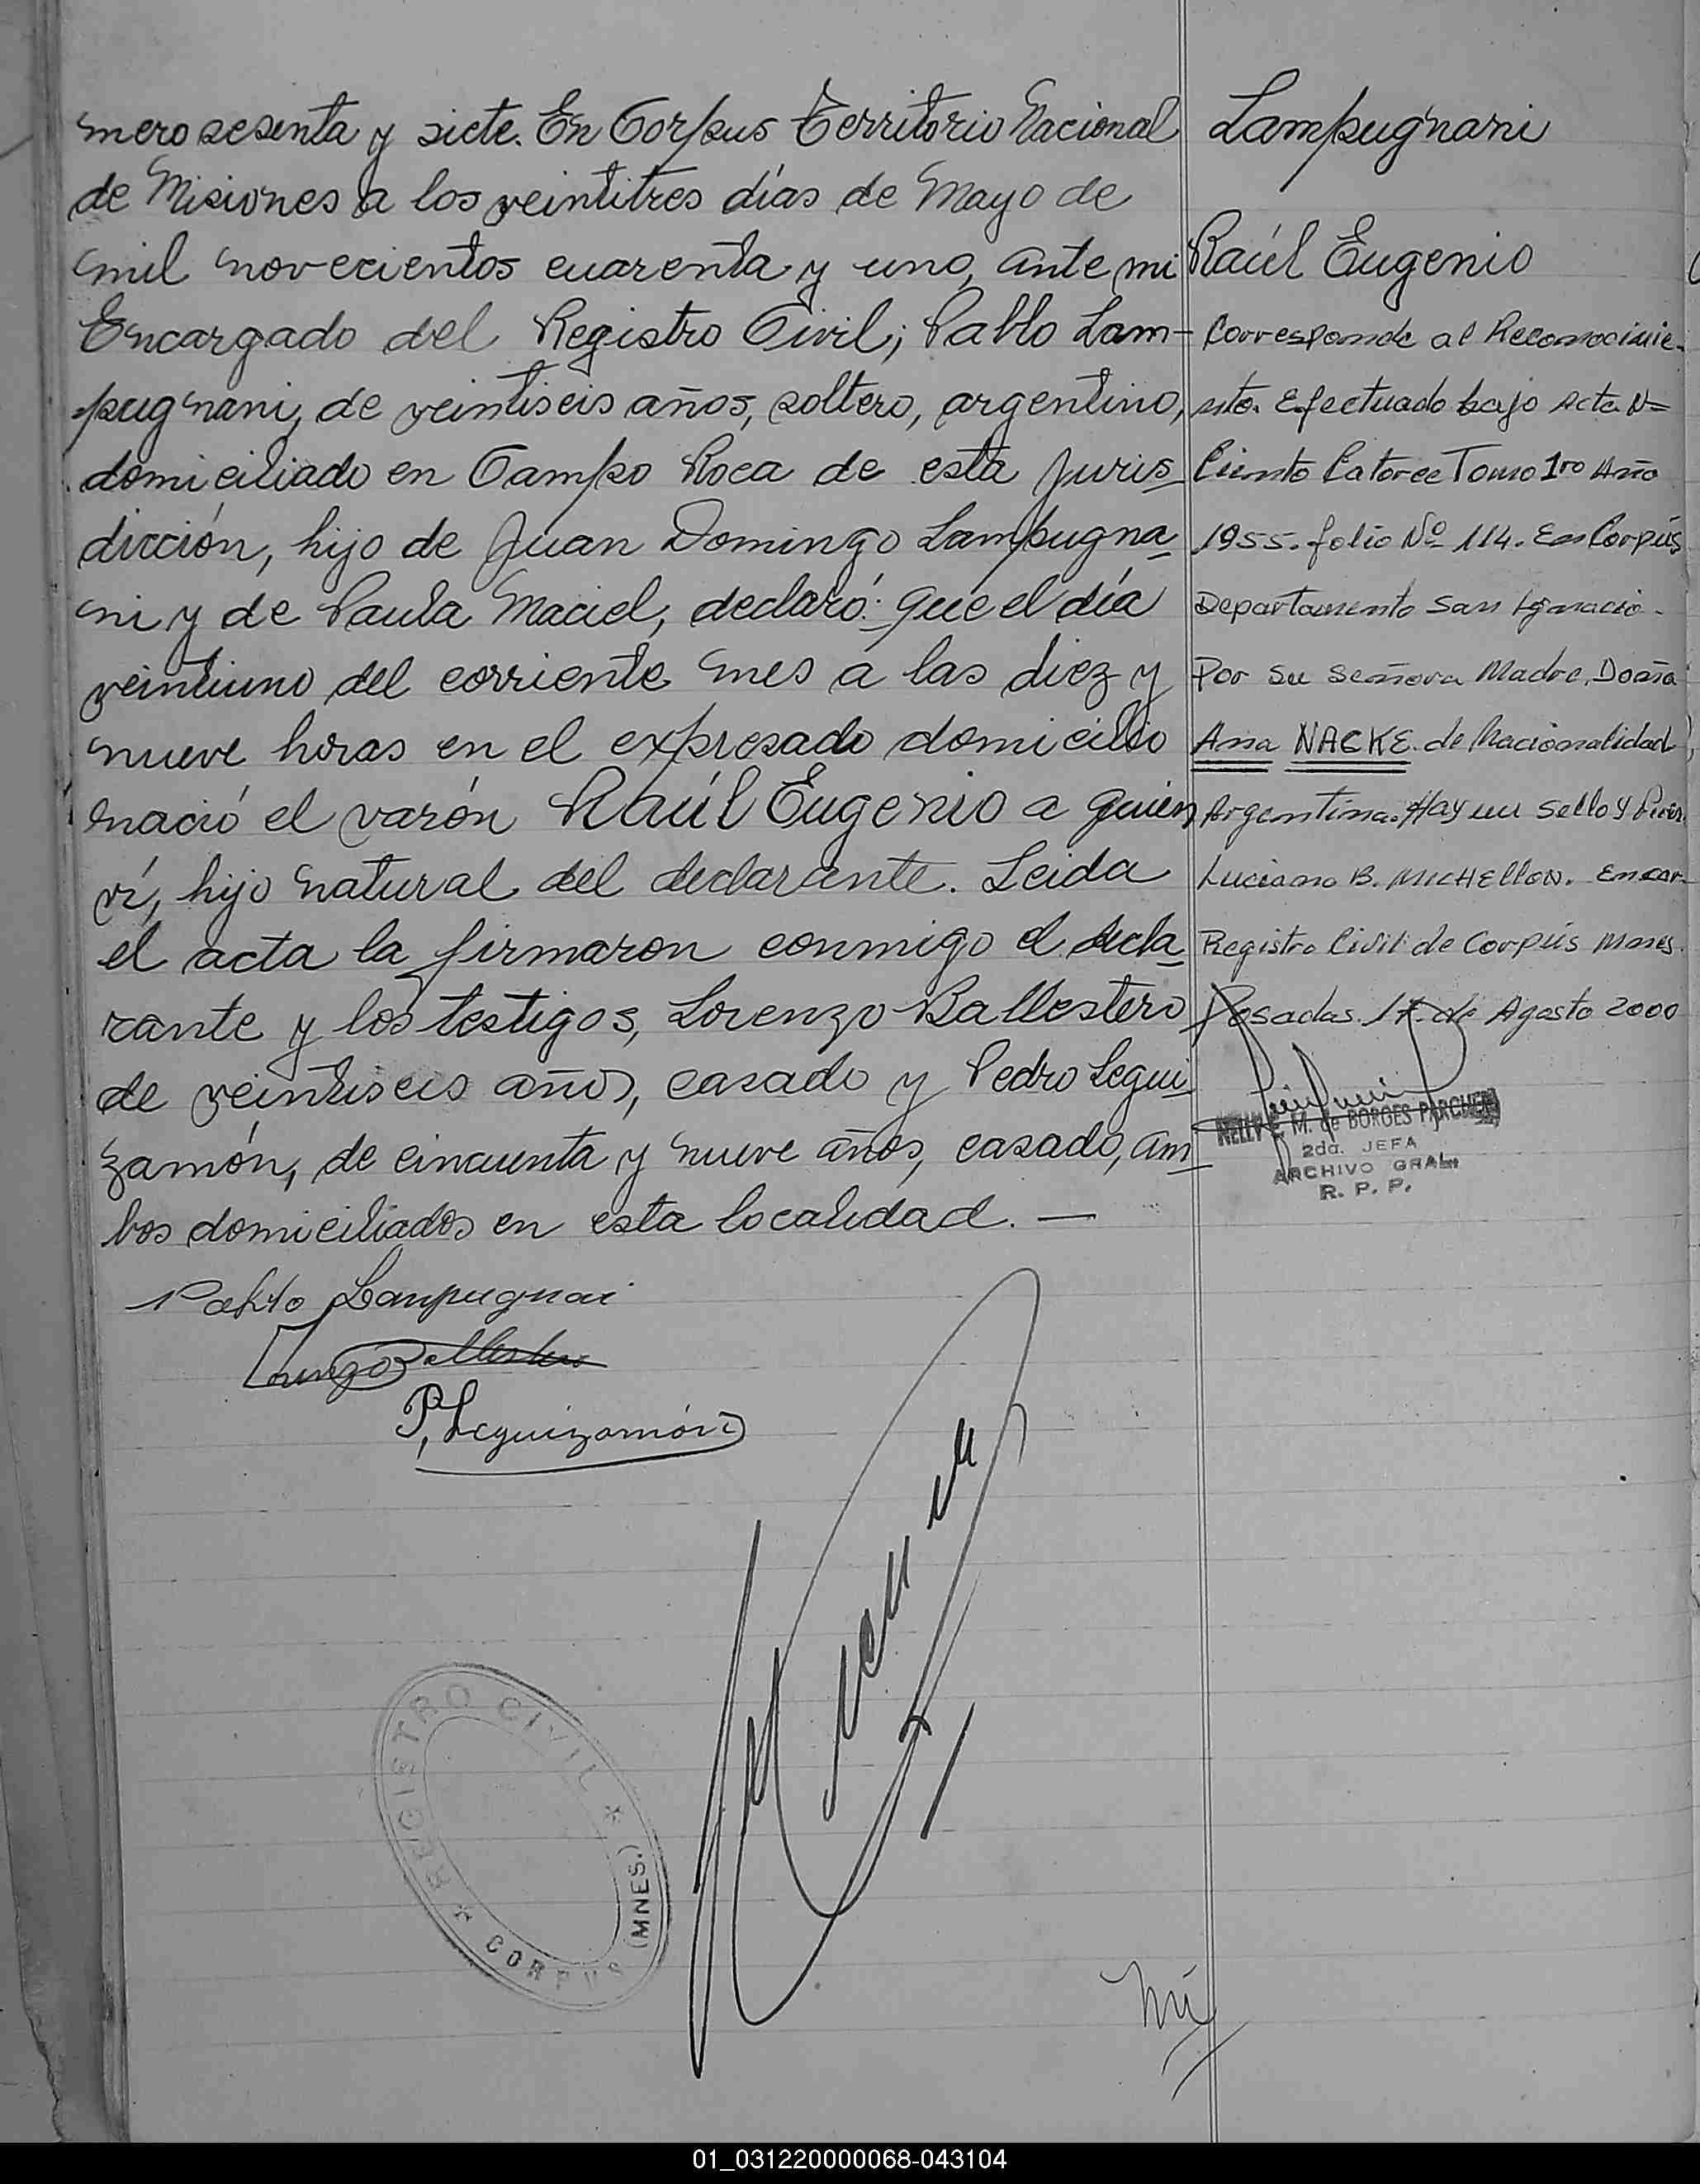 mero sesenta y siete. En Corpus Territorio Nacional
de Misiones a los veintitres días de Mayo de
mil novecientos cuarenta y uno, ante mi
Encargado del Registro Civil; Pablo Lam-
pugnani, de veintiseis años, soltero, argentino,
domiciliado en Campo Roca de esta Juris
dicción, hijo de Juan Domingo Lampugna
ni y de Paula Maciel, declaró: que el día
veintiuno del corriente mes a las diez y
nueve horas en el expresado domicilio
nació el varón Raúl Eugenio a quien
ví, hijo natural del declarante. Leida
el acta la firmaron conmigo el decla
rante y los testigos, Lorenzo Ballestero
de veintiseis años, casado y Pedro Legui
zamón, de cincuenta y nueve años, casado, am
bos domiciliados en esta localidad. —
Pablo Lampugnai
Lorenzo Ballestero
P. Leguizamón
REGISTRO CIVIL
* CORPUS (MNES.) *
Lampugnani
Raúl Eugenio
Corresponde al Reconocimie-
nto. Efectuado bajo Acta Nº
Ciento Catorce Tomo 1ro Año
1955. folio Nº 114. En Corpús
Departamento San Ignacio -
Por su Señora Madre, Doña
Ana NACKE. de Nacionalidad
Argentina. Hay un sello y firm.
Luciano B. MICHELLON. Encar-
Registro Civil de Corpús Mnes.
Posadas. 17 de Agosto 2000
NELLY E. M. de BORGES PARCHEN
2da. JEFA
ARCHIVO GRAL.
R. P. P.
01_031220000068-043104